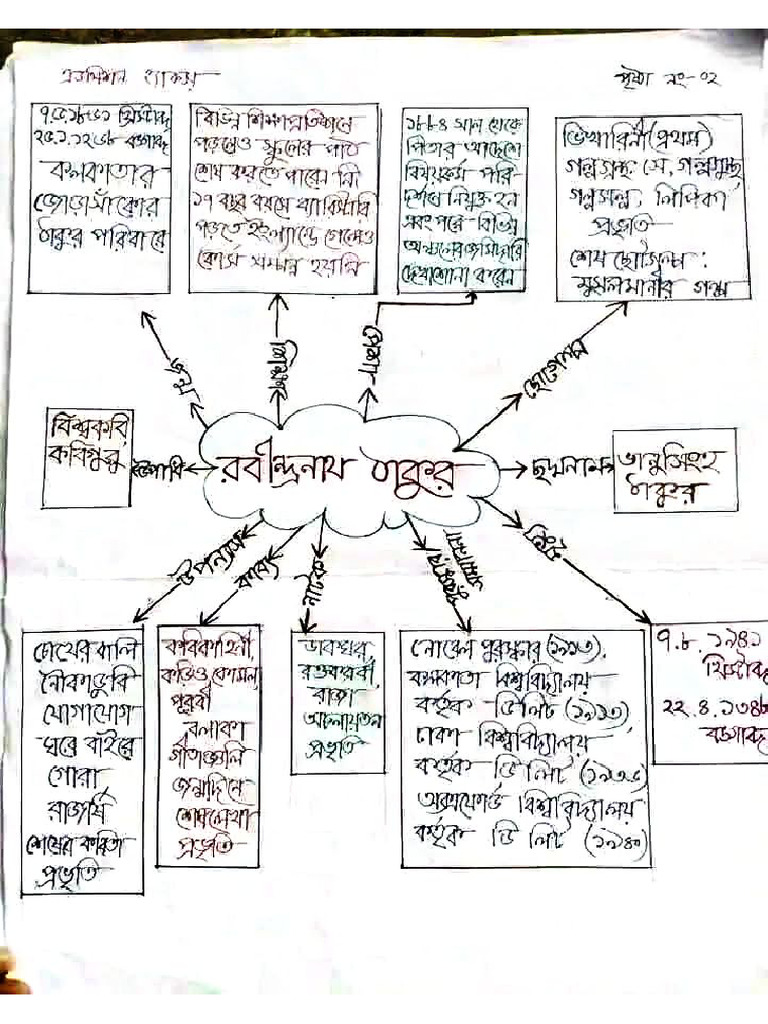 এডমিশন হ্যাকস
পৃষ্ঠা নং-০২
৭.৫.১৮৬১ খ্রিস্টাব্দ
২৫.১.১২৬৮ বঙ্গাব্দ
কলকাতার
জোড়াসাঁকোর
ঠাকুর পরিবারে
বিভিন্ন শিক্ষাপ্রতিষ্ঠানে
পড়লেও স্কুলের পাঠ
শেষ করতে পারেন নি
১৭ বছর বয়সে ব্যারিস্টারি
পড়তে ইংল্যান্ডে গেলেও
কোর্স সম্পন্ন হয়নি
১৮৮৪ সাল থেকে
পিতার আদেশে
বিষয়কর্ম পরি-
দর্শনে নিযুক্ত হন
এবং পরে বিভিন্ন
অঞ্চলের জমিদারি
দেখাশোনা করেন
ভিখারিনী (প্রথম)
গল্পগ্রন্থ: সে, গল্পগুচ্ছ
গল্পসল্প, লিপিকা
প্রভৃতি
শেষ ছোটগল্প:
মুসলমানীর গল্প
জন্ম
শিক্ষা
পেশা
ছোটগল্প
বিশ্বকবি
কবিগুরু
উপাধি
রবীন্দ্রনাথ ঠাকুর
ছদ্মনাম
ভানুসিংহ
ঠাকুর
উপন্যাস
কাব্য
নাটক
চোখের বালি
নৌকাডুবি
যোগাযোগ
ঘরে বাইরে
গোরা
রাজর্ষি
শেষের কবিতা
প্রভৃতি
কবিকাহিনী,
কড়িও কোমল,
পূরবী
বলাকা
গীতাঞ্জলি
জন্মদিনে
শেষলেখা
প্রভৃতি
ডাকঘর,
রক্তকরবী,
রাজা
অচলায়তন
প্রভৃতি
নোবেল পুরস্কার (১৯১৩),
কলকাতা বিশ্ববিদ্যালয়
কর্তৃক ডি লিট (১৯১৩)
ঢাকা বিশ্ববিদ্যালয়
কর্তৃক ডি লিট (১৯৩৬)
অক্সফোর্ড বিশ্ববিদ্যালয়
কর্তৃক ডি লিট (১৯৪০)
৭.৮.১৯৪১
খ্রিস্টাব্দ
২২.৪.১৩৪৮
বঙ্গাব্দ